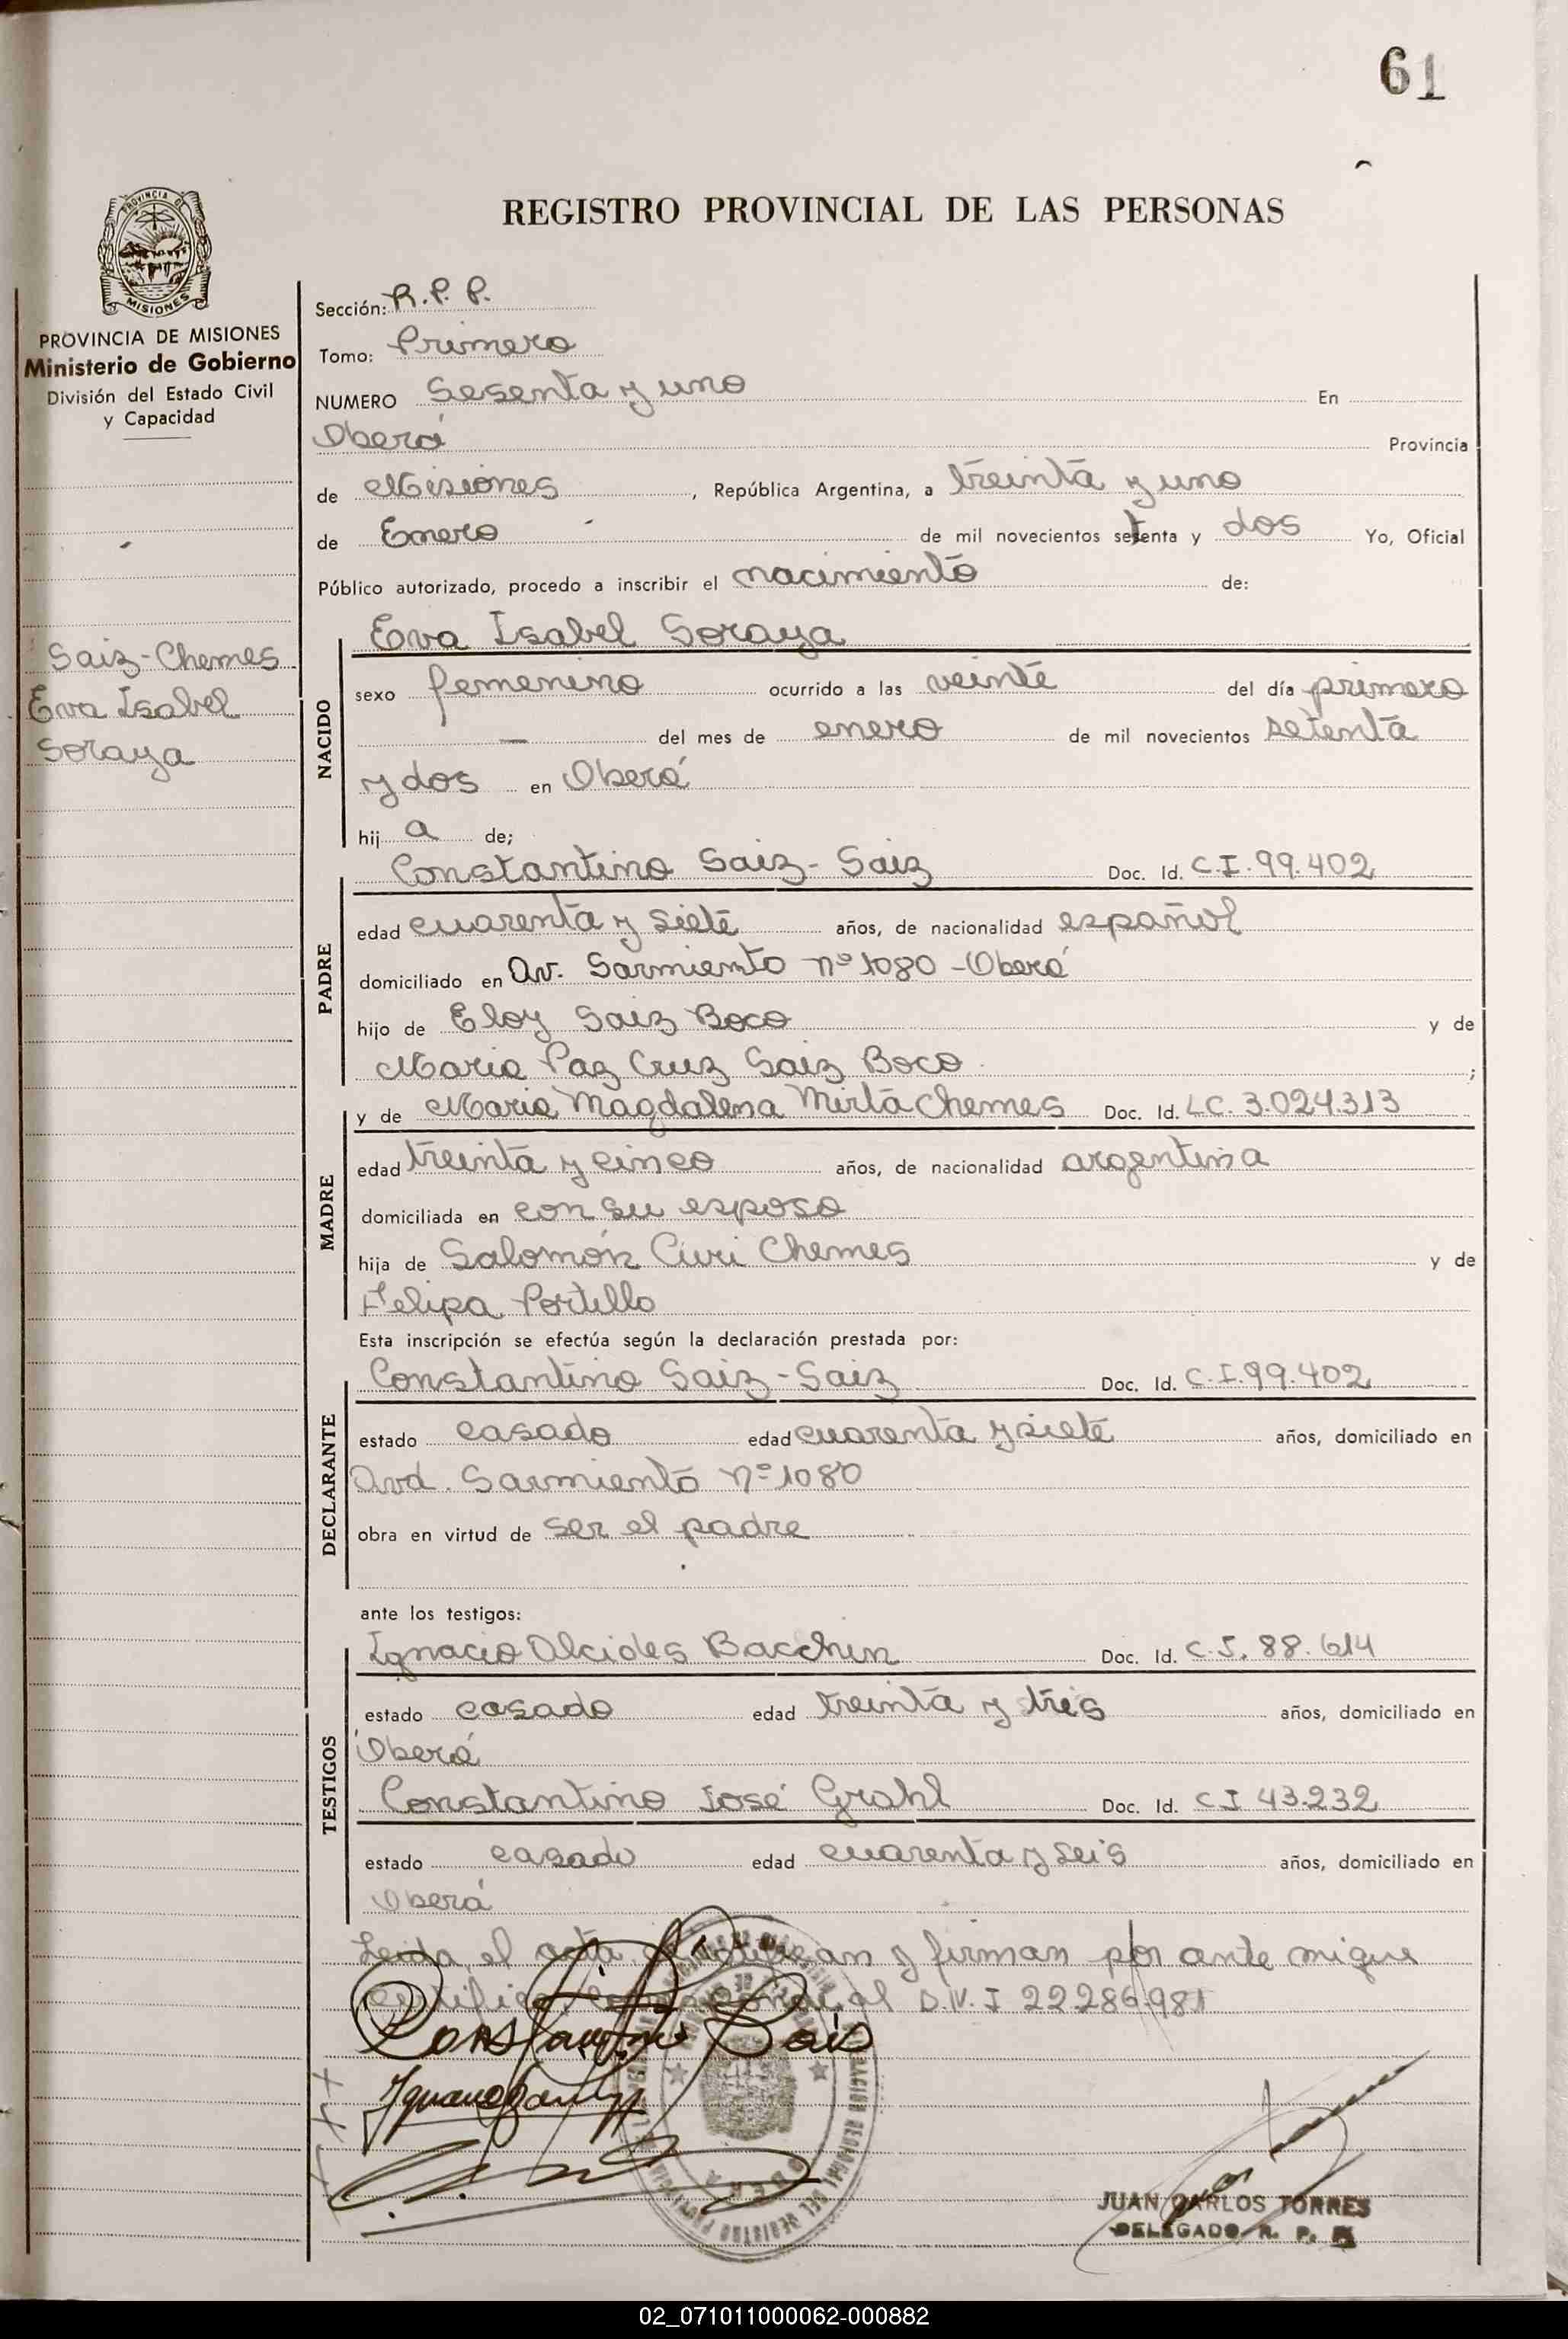 61
REGISTRO PROVINCIAL DE LAS PERSONAS
PROVINCIA DE
MISIONES
PROVINCIA DE MISIONES
Ministerio de Gobierno
División del Estado Civil
y Capacidad
Saiz-Chemes
Eva Isabel
Soraya
Sección: R.P.P.
Tomo: Primero
NUMERO Sesenta y uno En
Oberá Provincia
de Misiones, República Argentina, a treinta y uno
de Enero de mil novecientos setenta y dos Yo, Oficial
Público autorizado, procedo a inscribir el nacimiento de:
Eva Isabel Soraya
NACIDO
sexo femenino ocurrido a las veinte del día primero
— del mes de enero de mil novecientos setenta
y dos en Oberá
hij a de;
Constantino Saiz-Saiz Doc. Id. C.I. 99.402
PADRE
edad cuarenta y siete años, de nacionalidad español
domiciliado en Av. Sarmiento nº 1080 - Oberá
hijo de Eloy Saiz Boco y de
Maria Paz Cruz Saiz Boco ;
y de Maria Magdalena Mirta Chemes Doc. Id. LC. 3.024.313
MADRE
edad treinta y cinco años, de nacionalidad argentina
domiciliada en con su esposo
hija de Salomón Civi Chemes y de
Felipa Portillo
Esta inscripción se efectúa según la declaración prestada por:
Constantino Saiz-Saiz Doc. Id. C.I. 99.402
DECLARANTE
estado casado edad cuarenta y siete años, domiciliado en
Avd. Sarmiento Nº 1080
obra en virtud de ser el padre
ante los testigos:
Ignacio Alcides Bacchin Doc. Id. C.I. 88.614
TESTIGOS
estado casado edad treinta y tres años, domiciliado en
Oberá
Constantino José Grahl Doc. Id. CI 43.232
estado casado edad cuarenta y seis años, domiciliado en
Oberá
Leida el acta, ratifican y firman por ante mi que
certifico D.N.I 22286.981
Constantino Saiz
JUAN CARLOS TORRES
DELEGADO R. P. P.
02_071011000062-000882